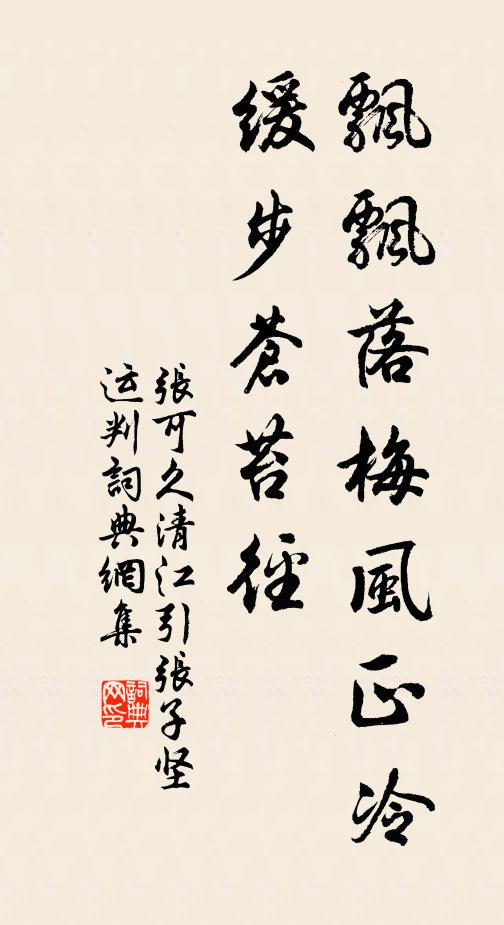 飄飄落梅風正冷
緩步蒼苔徑
張可久清江引張子坚
运判詞典網集
詞典网印